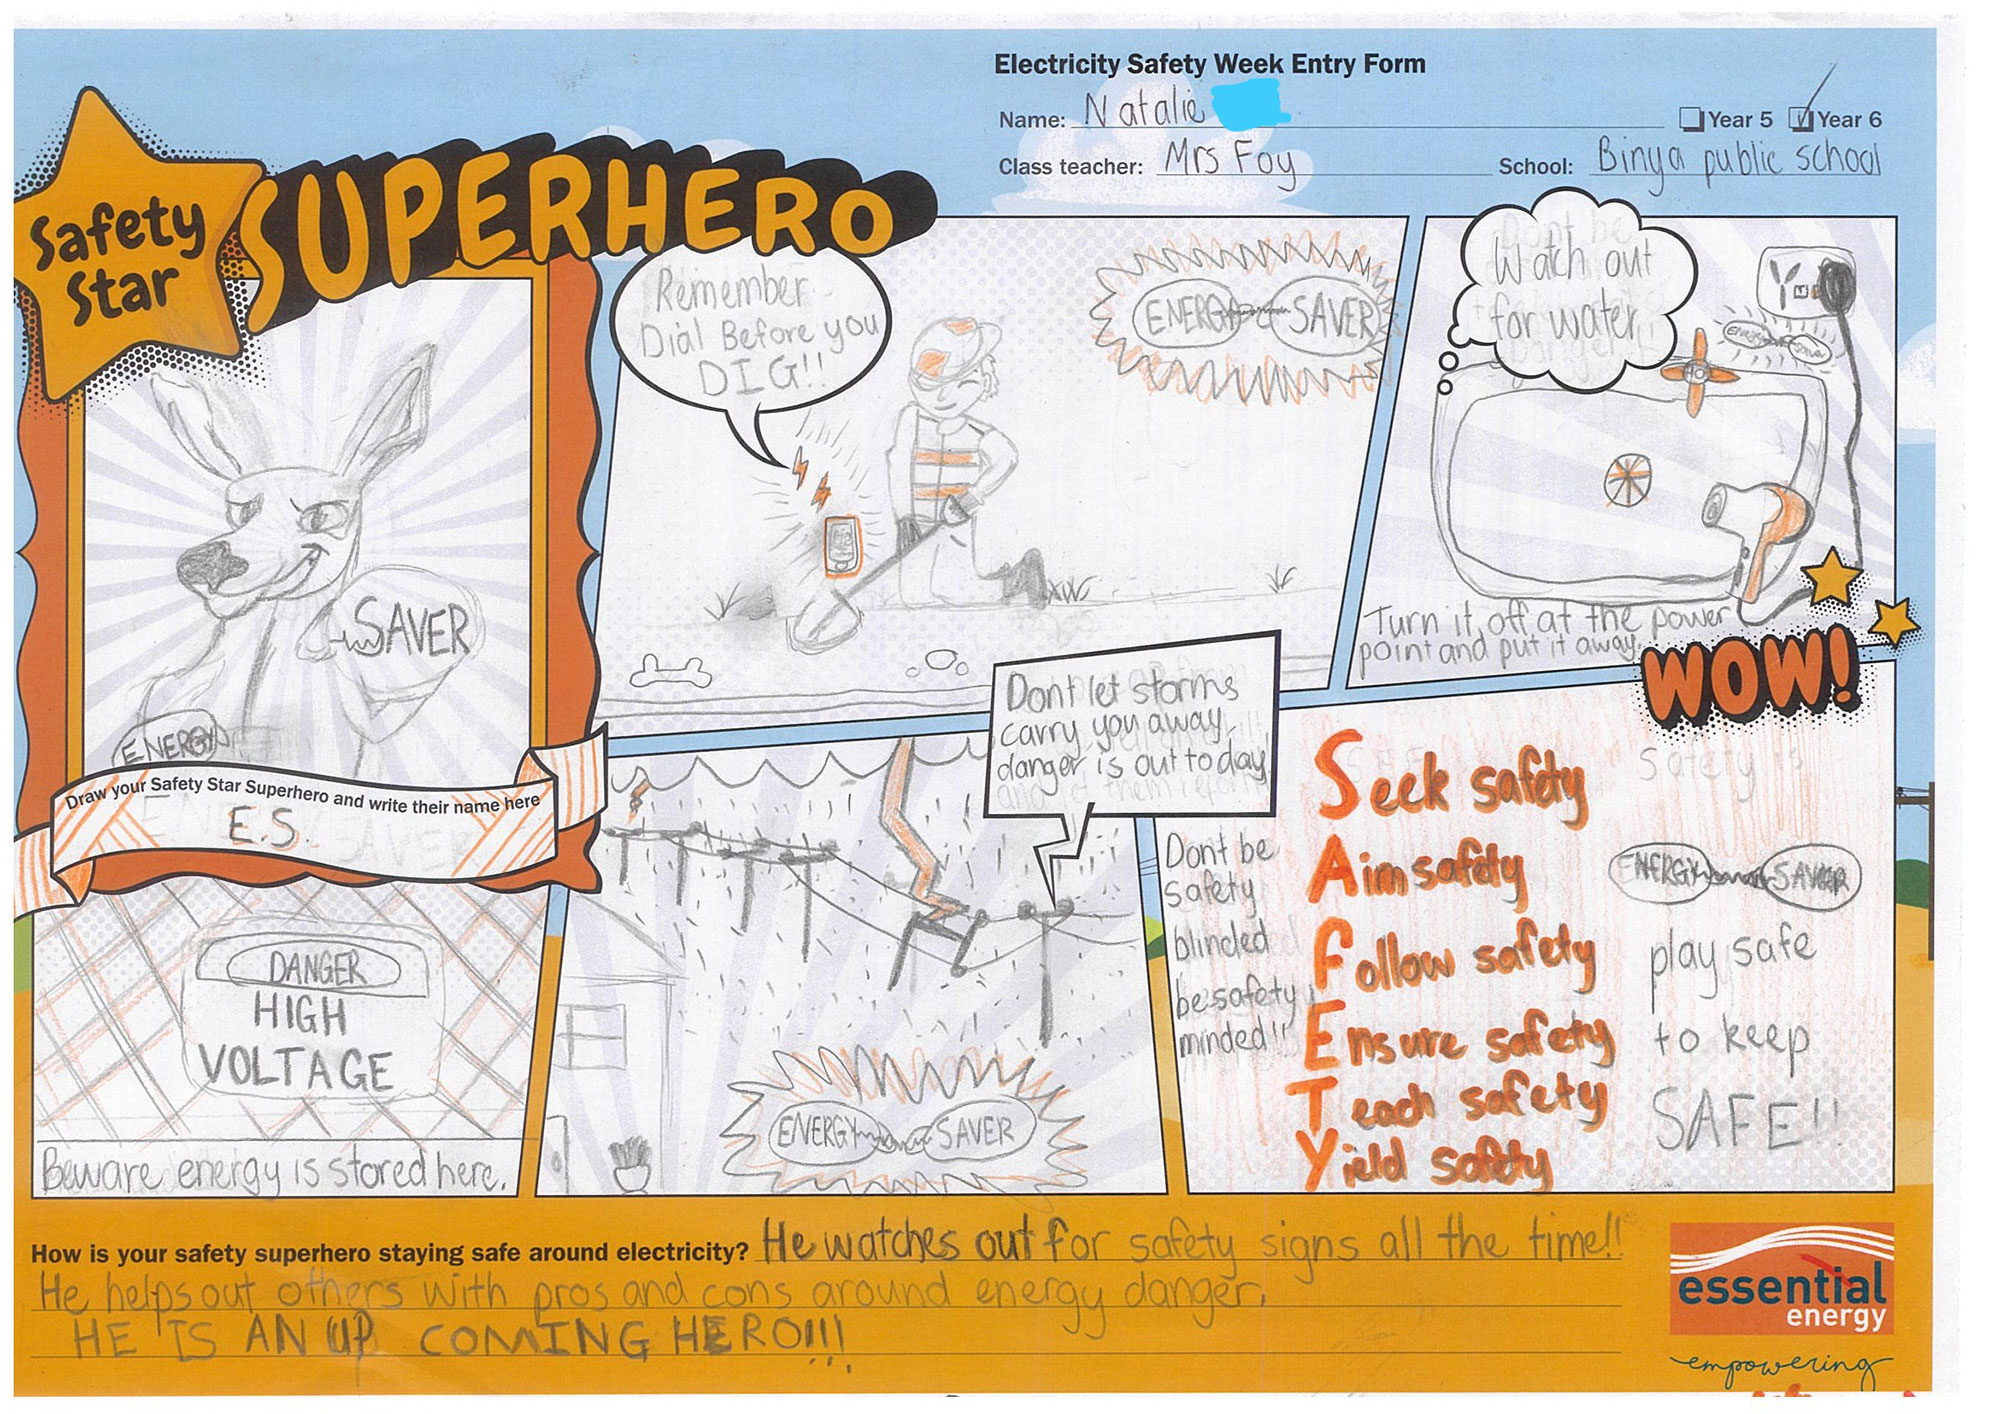 Electricity Safety Week Entry Form
Name: Natalie
Year 5 Year 6
Class teacher: Mrs Foy School: Binya public school
Safety
Star
SUPERHERO
SAVER
ENERGY
Draw your Safety Star Superhero and write their name here
E.S.
Remember
Dial Before you
DIG!!
ENERGY SAVER
Watch out
for water.
ENERGY SAVER
Turn it off at the power
point and put it away.
WOW!
DANGER
HIGH
VOLTAGE
Beware energy is stored here.
Dont let storms
carry you away,
danger is out today
ENERGY SAVER
Dont be
safety
blinded
be safety
minded!!
Seek safety
Aim safety
Follow safety
Ensure safety
Teach safety
Yield safety
Safety is
ENERGY SAVER
play safe
to keep
SAFE!!
How is your safety superhero staying safe around electricity? He watches out for safety signs all the time!!
He helps out others with pros and cons around energy danger.
HE IS AN UP COMING HERO!!!
essential
energy
empowering